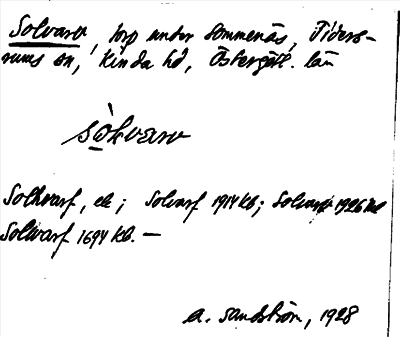 Solvarv, torp under Sommenäs, Tiders-
rums sn, Kinda hd, Östergötl. län
sòlvarv
Solhvarf, ek; Solvarf 1914 kb; Solvarv 1926
Solwarf 1694 kb. —
A. Sandström, 1928